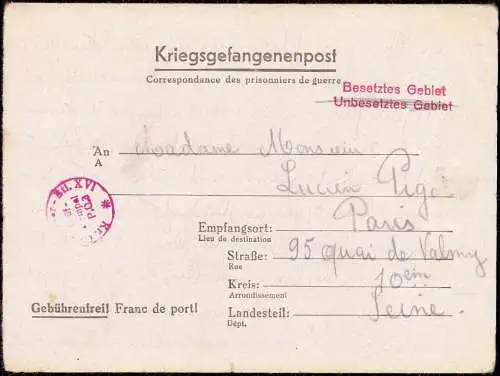 Kriegsgefangenenpost
Correspondance des prisonniers de guerre
Besetztes Gebiet
Unbesetztes Gebiet
An Madame Monsieur
A
Lucien Pigé
Empfangsort: Paris
Lieu de destination
Straße: 95 quai de Valmy
Rue
Kreis: 10em
Arrondissement
Landesteil: Seine.
Dépt.
Gebührenfrei! Franc de port!
XVI